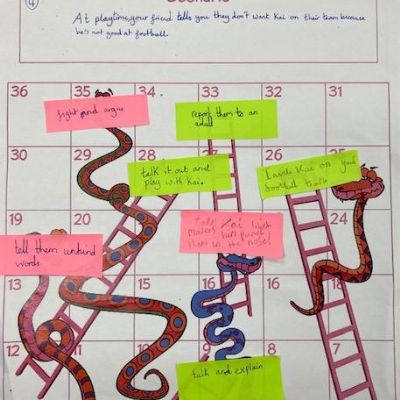 Scenario
4
At playtime, your friend tells you they don't want Kai on their team because
he's not good at football.
36 35 34 33 32 31
fight and argue
report them to an
adult
30 29 28 27 26
talk it out and
play with Kai.
Kai on your
football team
19 20 21 24
tell them unkind
words
Kai
punch
them in the nose!
16 15 13
12 11 9 8 7
talk and explain